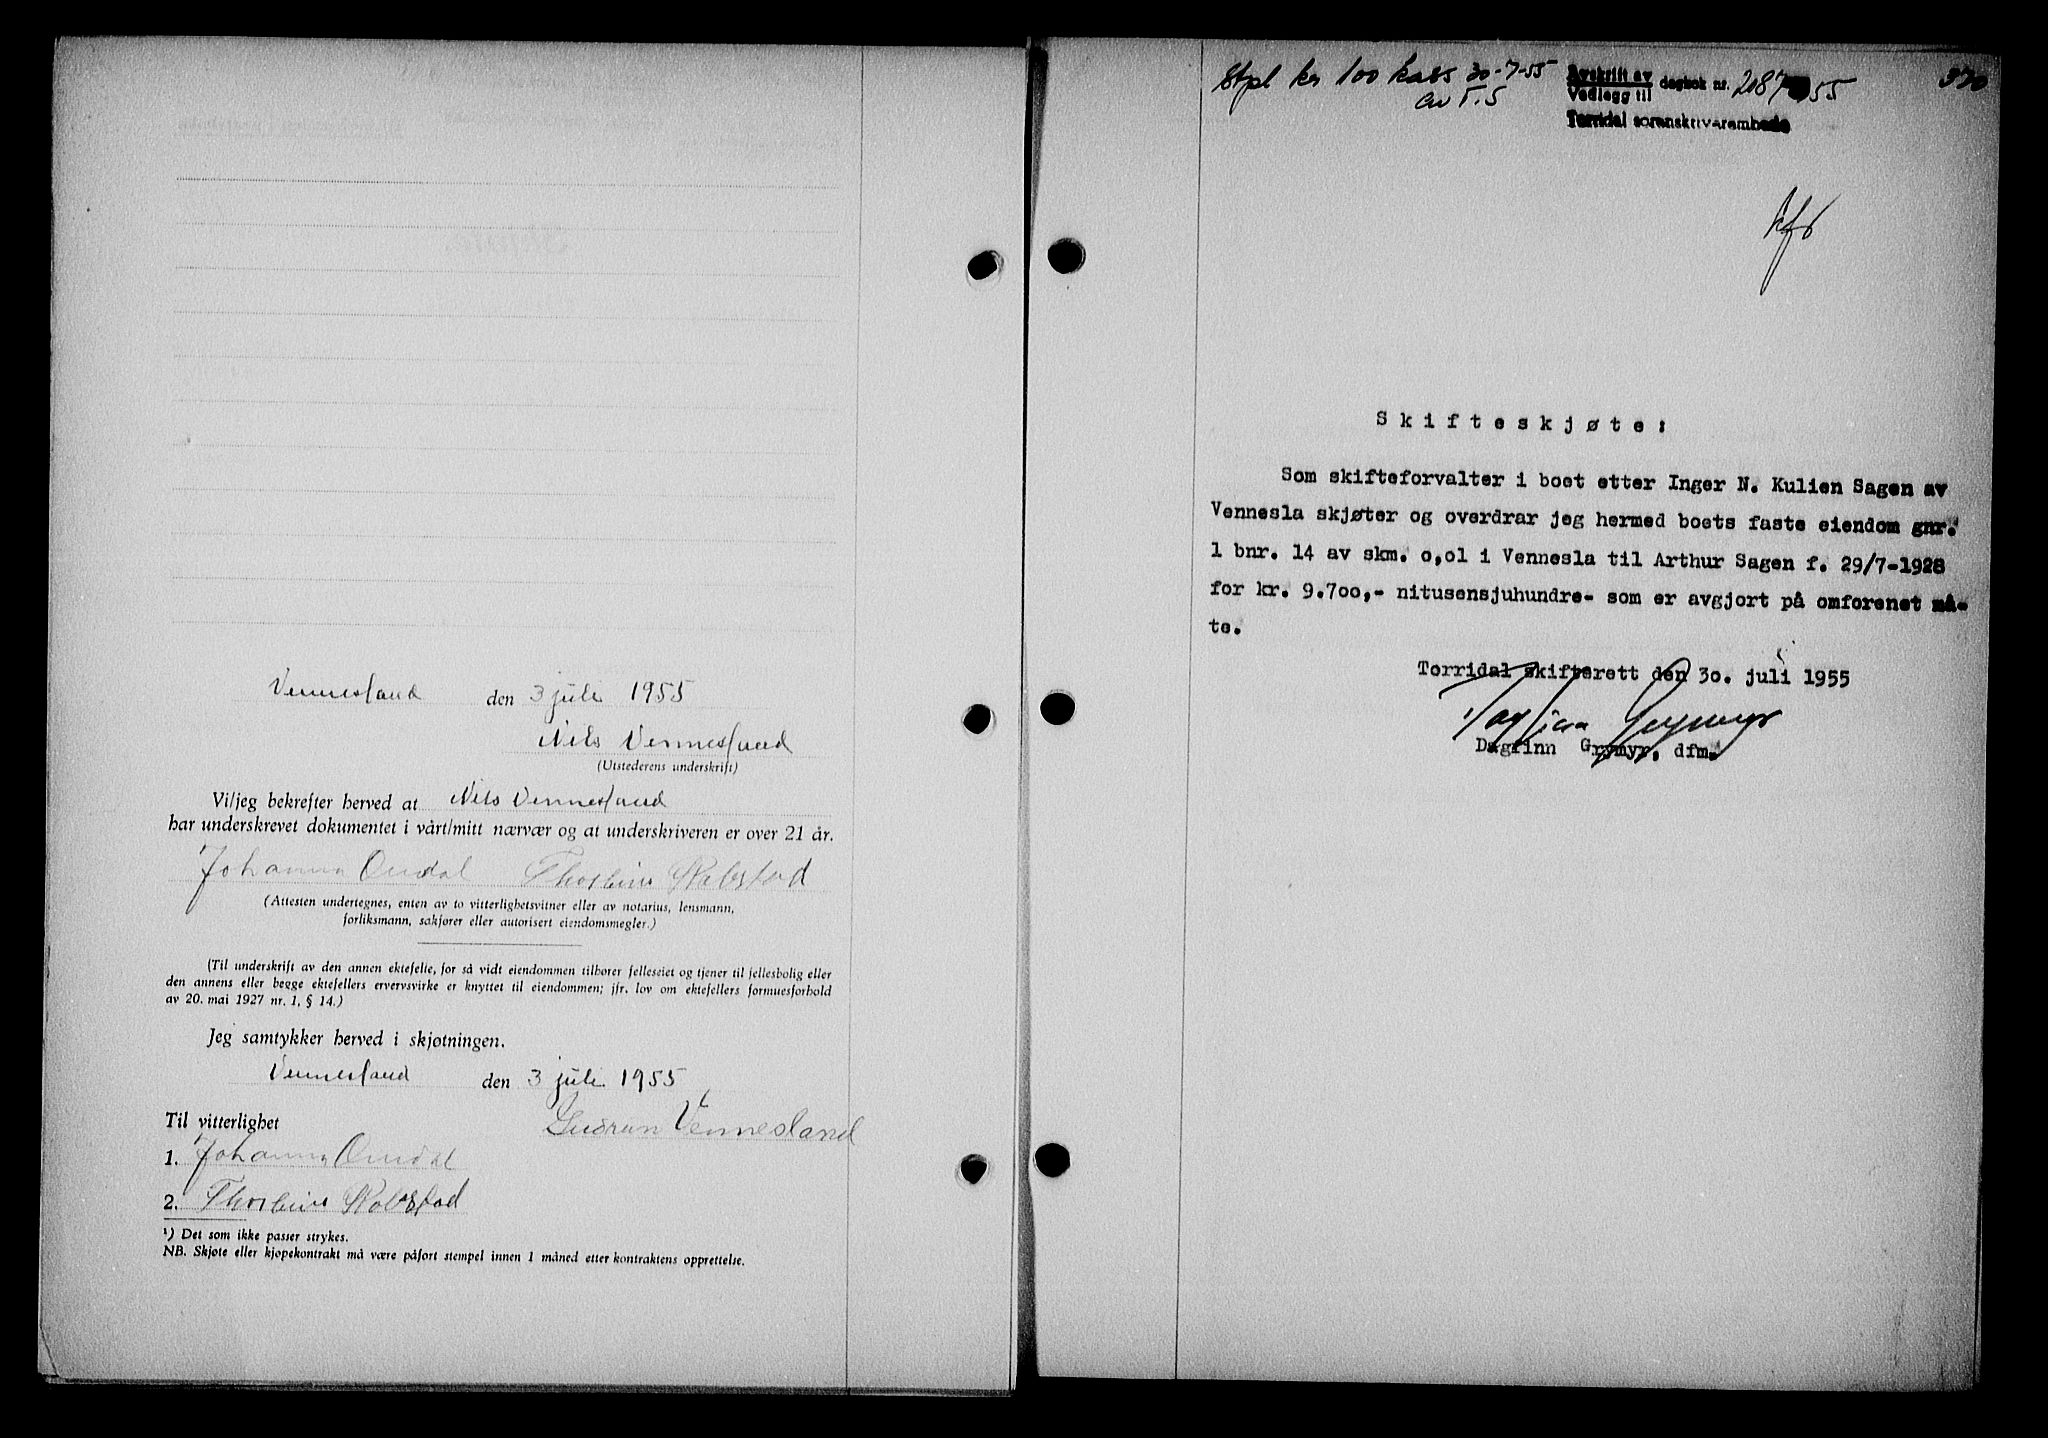 Vennesland den 3 juli 1955
Nils Vennesland
(Utstederens underskrift)
Vi/jeg bekrefter herved at Nils Vennesland
har underskrevet dokumentet i vårt/mitt nærvær og at underskriveren er over 21 år.
Johanna Omdal Thorbein Robstad
(Attesten undertegnes, enten av to vitterlighetsvitner eller av notarius, lensmann,
forliksmann, sakfører eller autorisert eiendomsmegler.)
(Til underskrift av den annen ektefelle, for så vidt eiendommen tilhører felleseiet og tjener til fellesbolig eller
den annens eller begge ektefellers ervervsvirke er knyttet til eiendommen; jfr. lov om ektefellers formuesforhold
av 20. mai 1927 nr. 1, § 14.)
Jeg samtykker herved i skjøtningen.
Vennesland den 3 juli 1955
Til vitterlighet Gudrun Vennesland
1. Johanna Omdal
2. Thorbein Robstad
¹) Det som ikke passer strykes.
NB. Skjøte eller kjøpekontrakt må være påført stempel innen 1 måned etter kontraktens opprettelse.
Stpl kr 100 kass 30-7-55
av T.S
Avskrift av
Vedlegg til dagbok nr. 2087 55
Torridal sorenskrivarembede
370
S k i f t e s k j ø t e :
Som skifteforvalter i boet etter Inger N. Kulien Sagen av
Vennesla skjøter og overdrar jeg hermed boets faste eiendom gnr.
1 bnr. 14 av skm. o,o1 i Vennesla til Arthur Sagen f. 29/7-1928
for kr. 9.7oo,- nitusensjuhundre- som er avgjort på omforenet må-
te.
Torridal skifterett den 3o. juli 1955
Dagfinn Grymyr
Dagfinn Grymyr, dfm.